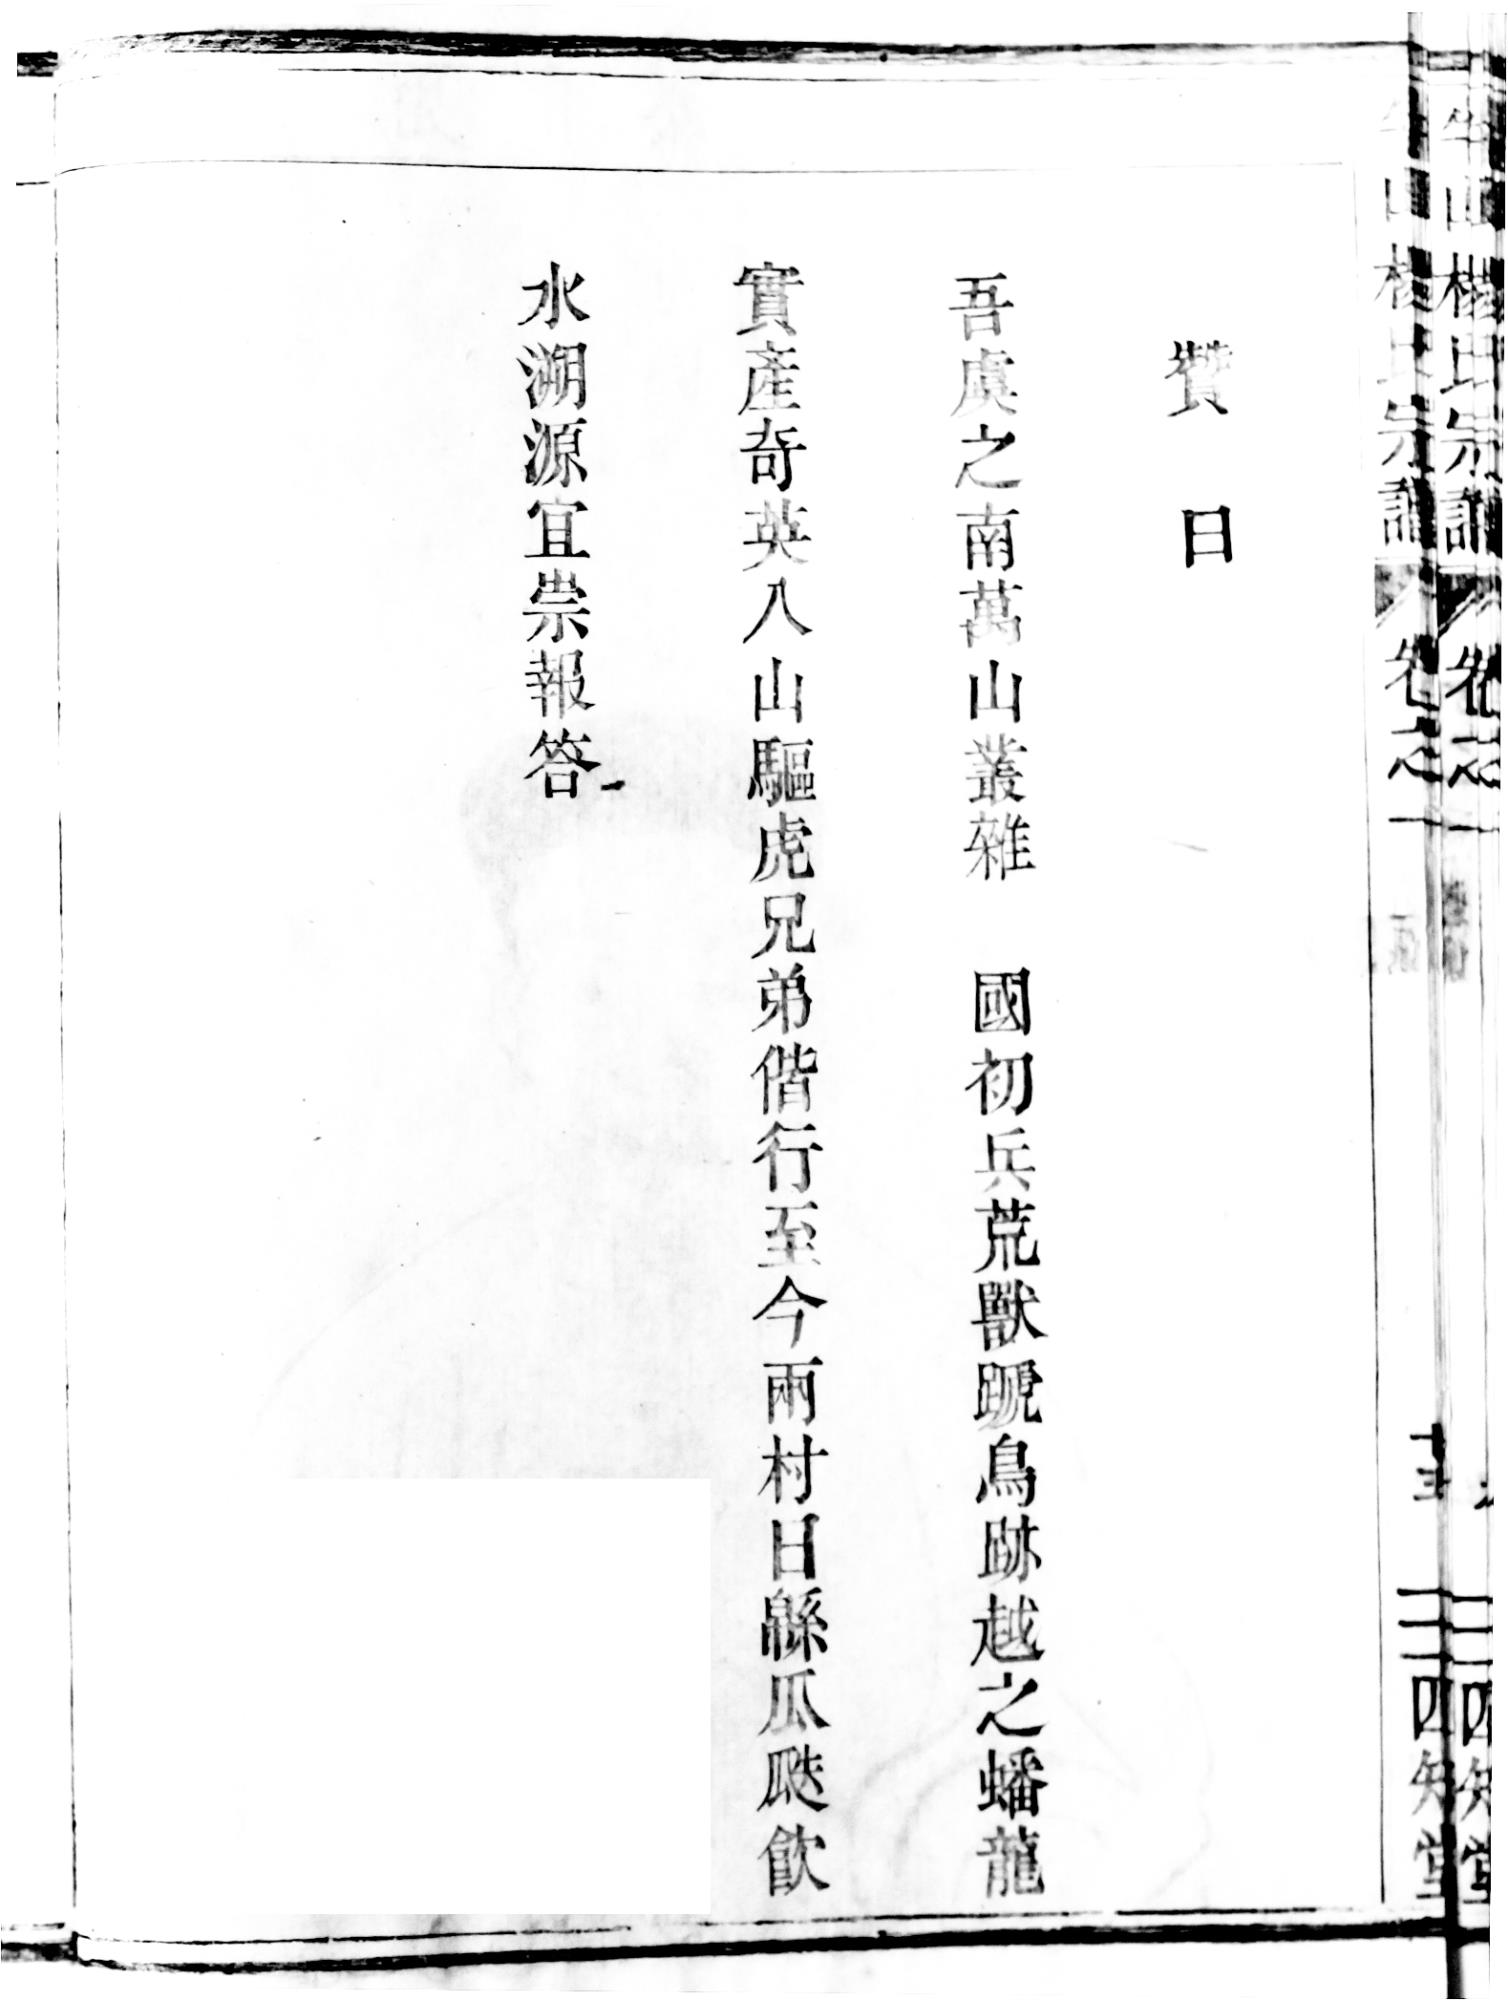 牛山楊氏宗譜 卷之一 四知堂
贊曰
吾虞之南萬山叢雜 國初兵荒獸蹏鳥跡越之蟠龍
實產奇英入山驅虎兄弟偕行至今兩村日緜瓜瓞飲
水溯源宜崇報答